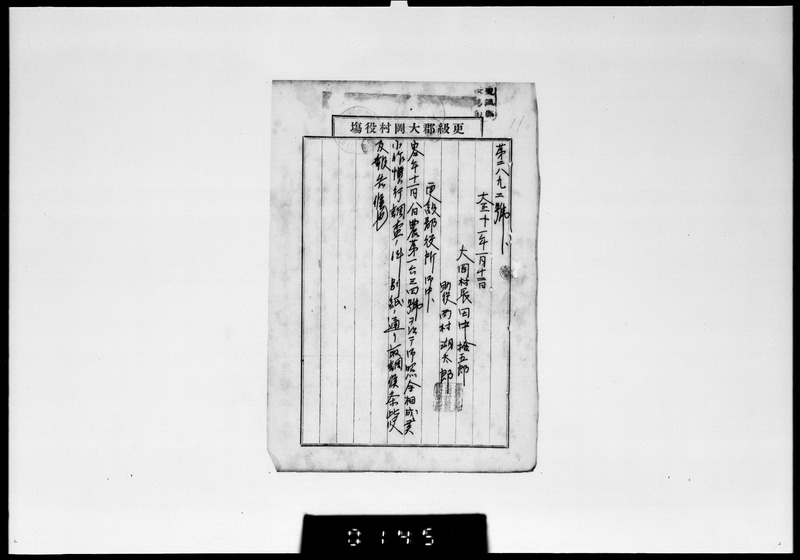 更級郡大岡村役場
第二八九二號
大正十一年一月十二日
大岡村長田中捨五郎
助役西村湖太郎
更級郡役所御中
客年十一月 日農第一六三四號ヲ以テ御照会相成候
小作慣行調査ノ件別紙ノ通リ取調候条此段
及報告候也
0145